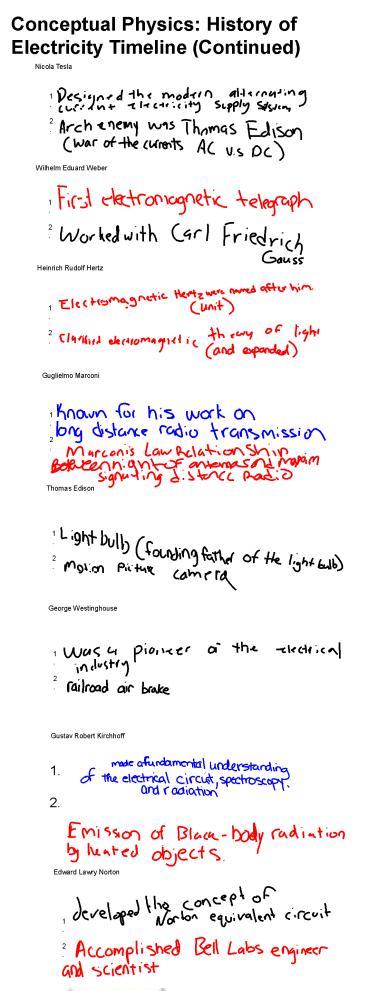 Conceptual Physics: History of
Electricity Timeline (Continued)
Nicola Tesla
1 Designed the modern alternating
current electricity supply system
2 Arch enemy was Thomas Edison
(war of the currents AC v.s DC)
Wilhelm Eduard Weber
1 First electromagnetic telegraph
2 Worked with Carl Friedrich
Gauss
Heinrich Rudolf Hertz
1 Electromagnetic Hertz were named after him
(unit)
2 Clarified electromagnetic theory of light
(and expanded)
Guglielmo Marconi
1 Known for his work on
2 long distance radio transmission
Marconis Law Relationship
Between hight of antennas and maxim
signaling distance radio
Thomas Edison
1 Light bulb (founding father of the light bulb)
2 Motion Picture camera
George Westinghouse
1 Was a pioneer of the electrical
industry
2 railroad air brake
Gustav Robert Kirchhoff
1. made a fundamental understanding
of the electrical circuit, spectroscopy,
and radiation
2.
Emission of Black-body radiation
by heated objects.
Edward Lawry Norton
1 developed the concept of
Norton equivalent circuit
2 Accomplished Bell Labs engineer
and scientist